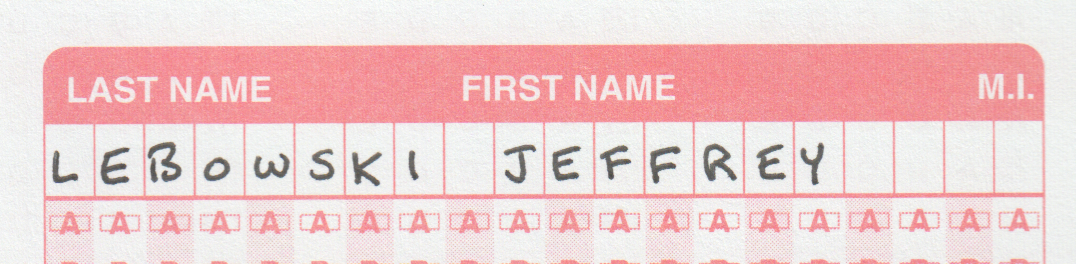 LAST NAME FIRST NAME M.I.
LEBOWSKI JEFFREY
A A A A A A A A A A A A A A A A A A A A